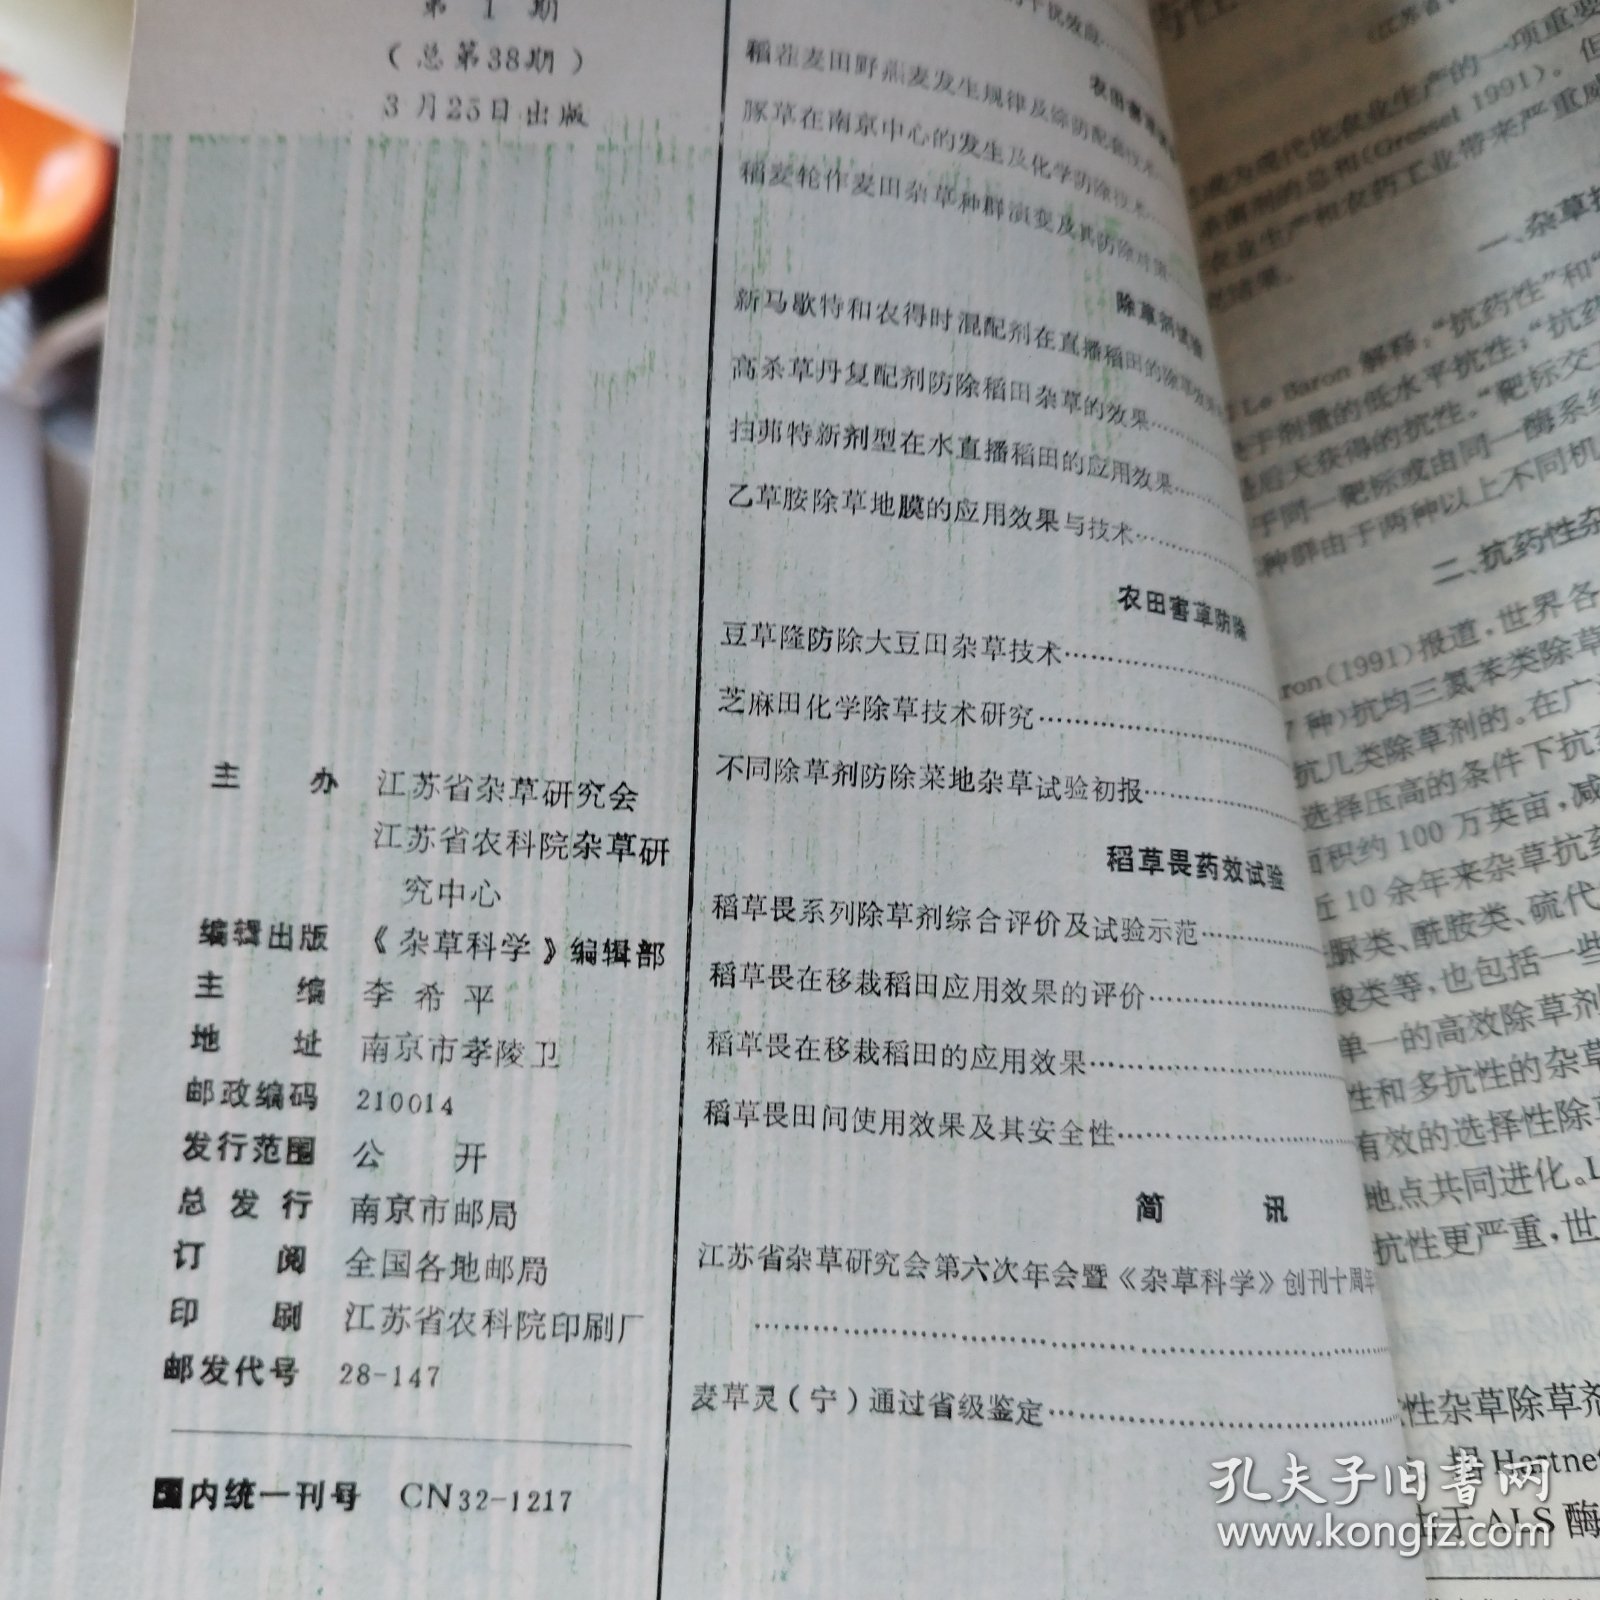 第 1 期
（总第38期）
3月25日出版
主 办 江苏省杂草研究会
江苏省农科院杂草研
究中心
编辑出版 《杂草科学》编辑部
主 编 李希平
地 址 南京市孝陵卫
邮政编码 210014
发行范围 公 开
总 发 行 南京市邮局
订 阅 全国各地邮局
印 刷 江苏省农科院印刷厂
邮发代号 28-147
国内统一刊号 CN32-1217
稻茬麦田野燕麦发生规律及综防配套技术
豚草在南京中心的发生及化学防除技术
稻麦轮作麦田杂草种群演变及其防除对策
除草剂试验
新马歇特和农得时混配剂在直播稻田的除草效果
高杀草丹复配剂防除稻田杂草的效果
扫茀特新剂型在水直播稻田的应用效果
乙草胺除草地膜的应用效果与技术
农田害草防除
豆草隆防除大豆田杂草技术
芝麻田化学除草技术研究
不同除草剂防除菜地杂草试验初报
稻草畏药效试验
稻草畏系列除草剂综合评价及试验示范
稻草畏在移栽稻田应用效果的评价
稻草畏在移栽稻田的应用效果
稻草畏田间使用效果及其安全性
简 讯
江苏省杂草研究会第六次年会暨《杂草科学》创刊十周年
麦草灵（宁）通过省级鉴定
成为现代化农业生产的一项重要
杀菌剂的总和(Gresset 1991)。但
农业生产和农药工业带来严重威
一、杂草抗
Le Baron 解释："抗药性"和"
于剂量的低水平抗性；"抗药
后天获得的抗性。"靶标交
于同一靶标或由同一酶系统
种群由于两种以上不同机
二、抗药性杂
ron(1991)报道，世界各
7 种)抗均三氮苯类除草
抗几类除草剂的。在广
选择压高的条件下抗
面积约100万英亩，减
近10余年来杂草抗药
脲类、酰胺类、硫代
酸类等，也包括一些
单一的高效除草剂
性和多抗性的杂草
有效的选择性除草
地点共同进化。L
抗性更严重，世
性杂草除草剂
据Hartne
由于ALS酶
孔夫子旧书网
www.kongfz.com